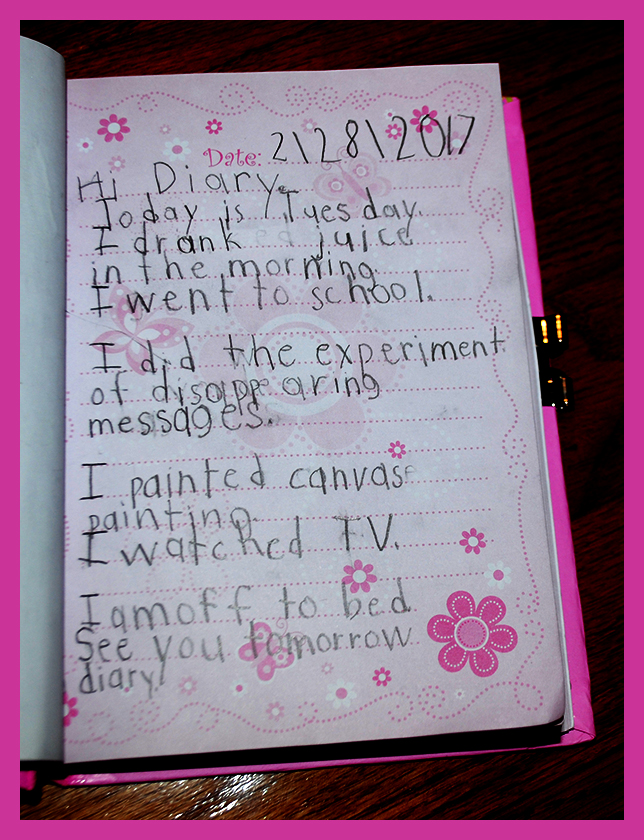 Date: 2\28\2017
Hi Diary.
Today is Tuesday.
I drank juice
in the morning.
I went to school.
I did the experiment
of disappearing
messages.
I painted canvas
painting.
I watched TV.
I am off to bed
See you tomorrow
diary!